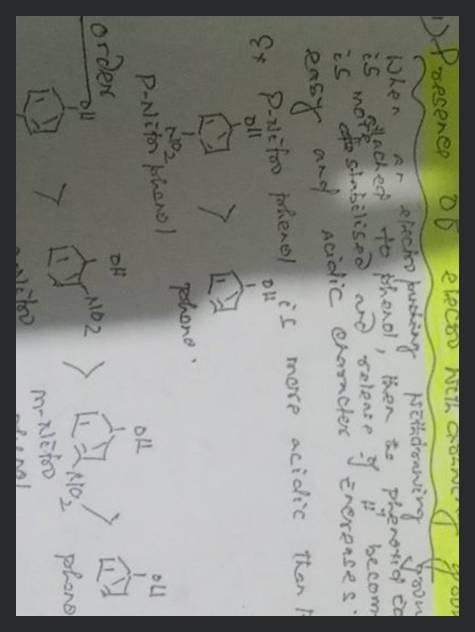 1) Presence of electron withdrawing
When an electro pushing withdrawing group
is attached to phenol, then to phenoxid
is more destabilised and release of H+ becom
easy and acidic character increases.
Ex P-Nitro phenol is more acidic than
OH
OH
>
NO2
P-Nitro phenol
phenol.
order
OH
OH
OH
OH
>
NO2
>
NO2
>
m-Nitro
pheno